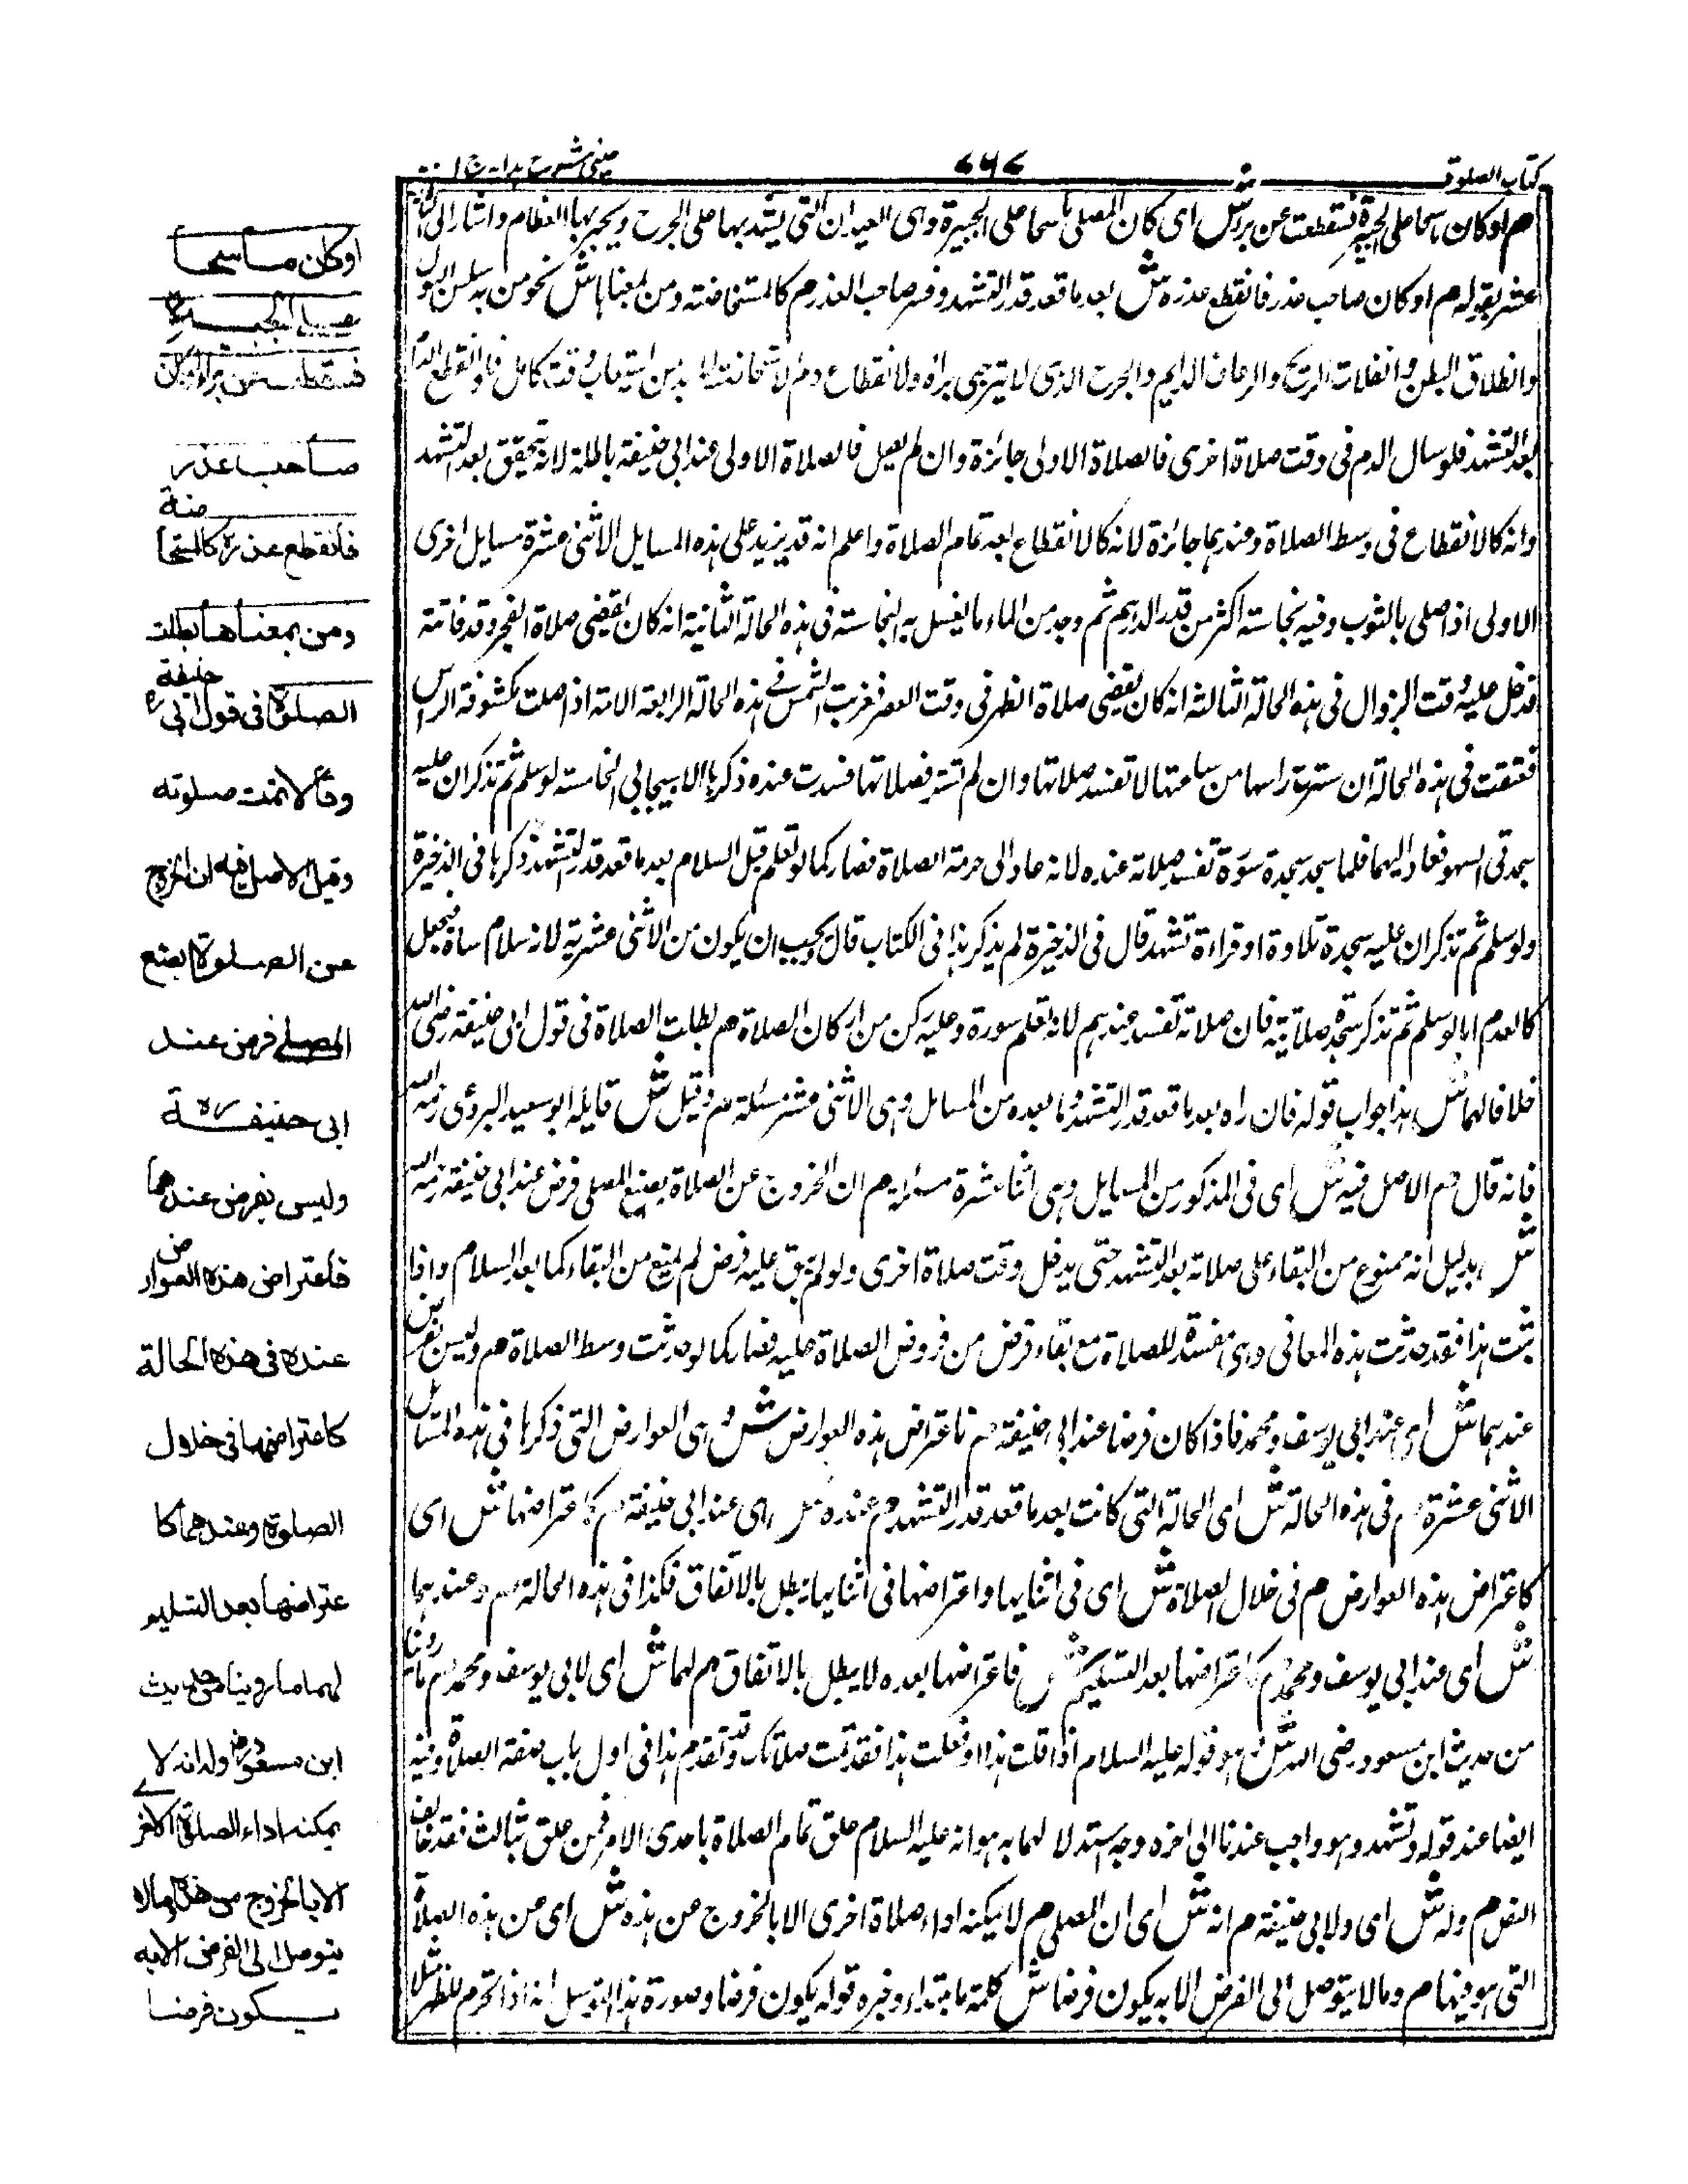 كتاب الصلوة
٧٦٧
عينى شرح هدايه ج ١
م او كان ماسحا على الجبيرة فسقطت عن برء ش اى كان المصلى ماسحا على الجبيرة وهى العيدان التى يشد بها على الجرح ويجبر بها العظام واشار الى الثانية
عشر بقوله م او كان صاحب عذر فانقطع عذره ش بعد ما قعد قدر التشهد وفسر صاحب العذر م كالمستحاضة ومن بمعناها ش نحو من به سلس البول
وانطلاق البطن وانفلات الريح والرعاف الدايم والجرح الذى لا يرقى ولانقطاع دم الاستحاضة لا بد من استيعاب وقت كامل فاذا انقطع الدم
بعد التشهد فلو سال الدم فى وقت صلاة اخرى فالصلاة الاولى جائزة وان لم يسل فالصلاة الاولى عند ابى حنيفة باطلة لانه تحقق بعد التشهد
وانه كالانقطاع فى وسط الصلاة وعندهما جائزة لانه كالانقطاع بعد تمام الصلاة واعلم انه قد يزيد على هذه المسايل الاثنى عشرة مسايل اخرى
الاولى اذا صلى بالثوب وفيه نجاسة اكثر من قدر الدرهم ثم وجد من الماء ما يغسل به النجاسة فى هذه الحالة الثانية انه كان يقضى صلاة الفجر وقد فاتته
فدخل عليه وقت الزوال فى هذه الحالة الثالثة انه كان يقضى صلاة الظهر فى وقت العصر فغربت الشمس فى هذه الحالة الرابعة الامة اذا صلت مكشوفة الراس
فعتقت فى هذه الحالة ان سترت راسها من ساعتها لا تفسد صلاتها وان لم تستر فصلاتها فسدت عنده ذكرها الاسبيجابى الخامسة لو سلم ثم تذكر ان عليه
سجدتى السهو فعاد اليهما فلما سجد سجدة تعلم سورة تفسد صلاته عنده لانه عاد الى حرمة الصلاة فصار كما لو تعلم قبل السلام بعد ما قعد قدر التشهد ذكرها فى الذخيرة
ولو سلم ثم تذكر ان عليه سجدة تلاوة او قراءة تشهد قال فى الذخيرة لم يذكر هذا فى الكتاب قال ويجب ان يكون من الاثنى عشرية لانه سلام ساه فيجعل
كالعدم اما لو سلم ثم تذكر سجدة صلاتية فان صلاته تفسد عندهم لانه تعلم سورة وعليه ركن من اركان الصلاة م بطلت الصلاة فى قول ابى حنيفة رضى الله
خلافا لهما ش هذا جواب قوله فان راه بعد ما قعد قدر التشهد وما بعده من المسايل وهى الاثنى عشر مسئلة م وقيل ش قايله ابو سعيد البردعى رحمه الله
فانه قال م الاصل فيه ش اى فى المذكور من المسايل وهى اثنا عشرة مسئلة م ان الخروج عن الصلاة بصنع المصلى فرض عند ابى حنيفة رحمه الله
ش بدليل انه ممنوع من البقاء على صلاته بعد التشهد حتى يدخل وقت صلاة اخرى ولو لم يبق عليه فرض لم يمنع من البقاء كما بعد السلام واذا
ثبت هذا فقد حدثت هذه المعانى وهى مفسدة للصلاة مع بقاء فرض من فروض الصلاة عليه فصار كما لو حدثت وسط الصلاة م وليس بفرض
عندهما ش اى عند ابى يوسف ومحمد فاذا كان فرضا عند ابى حنيفة م فاعتراض هذه العوارض ش وهى العوارض التى ذكرها فى هذه المسايل
الاثنى عشرة م فى هذه الحالة ش اى الحالة التى كانت بعد ما قعد قدر التشهد م عنده ش اى عند ابى حنيفة م كاعتراضها ش اى
كاعتراض هذه العوارض م فى خلال الصلاة ش اى فى اثنايها واعتراضها فى اثنايها يبطل بالاتفاق فكذا فى هذه الحالة م وعندهما
ش اى عند ابى يوسف ومحمد م كاعتراضها بعد التسليم ش فاعتراضها بعده لا يبطل بالاتفاق م لهما ش اى لابى يوسف ومحمد م ما روينا
من حديث ابن مسعود رضى الله ش هو قوله عليه السلام اذا قلت هذا او فعلت هذا فقد تمت صلاتك وقد تقدم هذا فى اول باب صفة الصلاة وفيه
ايضا عند قوله وتشهد وهو واجب عندنا الى اخره وجه استدلالهما به هو انه عليه السلام علق تمام الصلاة باحدى الامرين فمن علق بثالث فقد خالف
النص م وله ش اى ولابى حنيفة م انه ش اى ان المصلى م لا يمكنه اداء صلاة اخرى الا بالخروج عن هذه ش اى عن هذه الصلاة
التى هو فيها م وما لا يتوصل الى الفرض الا به يكون فرضا ش كلمة ما مبتداء وخبره قوله يكون فرضا وصورة هذا التوسل انه اذا تحرم للظهر مثلا
اوكان ماسحا
على الجبيرة
فسقطت عن براوكان
صاحب عذر
فانقطع عذره كالمستحاضة
ومن بمعناها بطلت
الصلوة فى قول ابى حنيفة ره
وقالا تمت صلوته
وقيل الاصل فيه ان الخروج
عن الصلوة بصنع
المصلے فرض عند
ابى حنيفة ره
وليس بفرض عندهما
فاعتراض هذه العوارض
عنده فى هذه الحالة
كاعتراضها فى خلال
الصلوة وعندهما كا
عتراضها بعد التسليم
لهما ما روينا من حديث
ابن مسعود رض وله انه لا
يمكنه اداء الصلوة الاخرى
الا بالخروج من هذه ومالا
يتوصل الى الفرض الا به
يكون فرضا